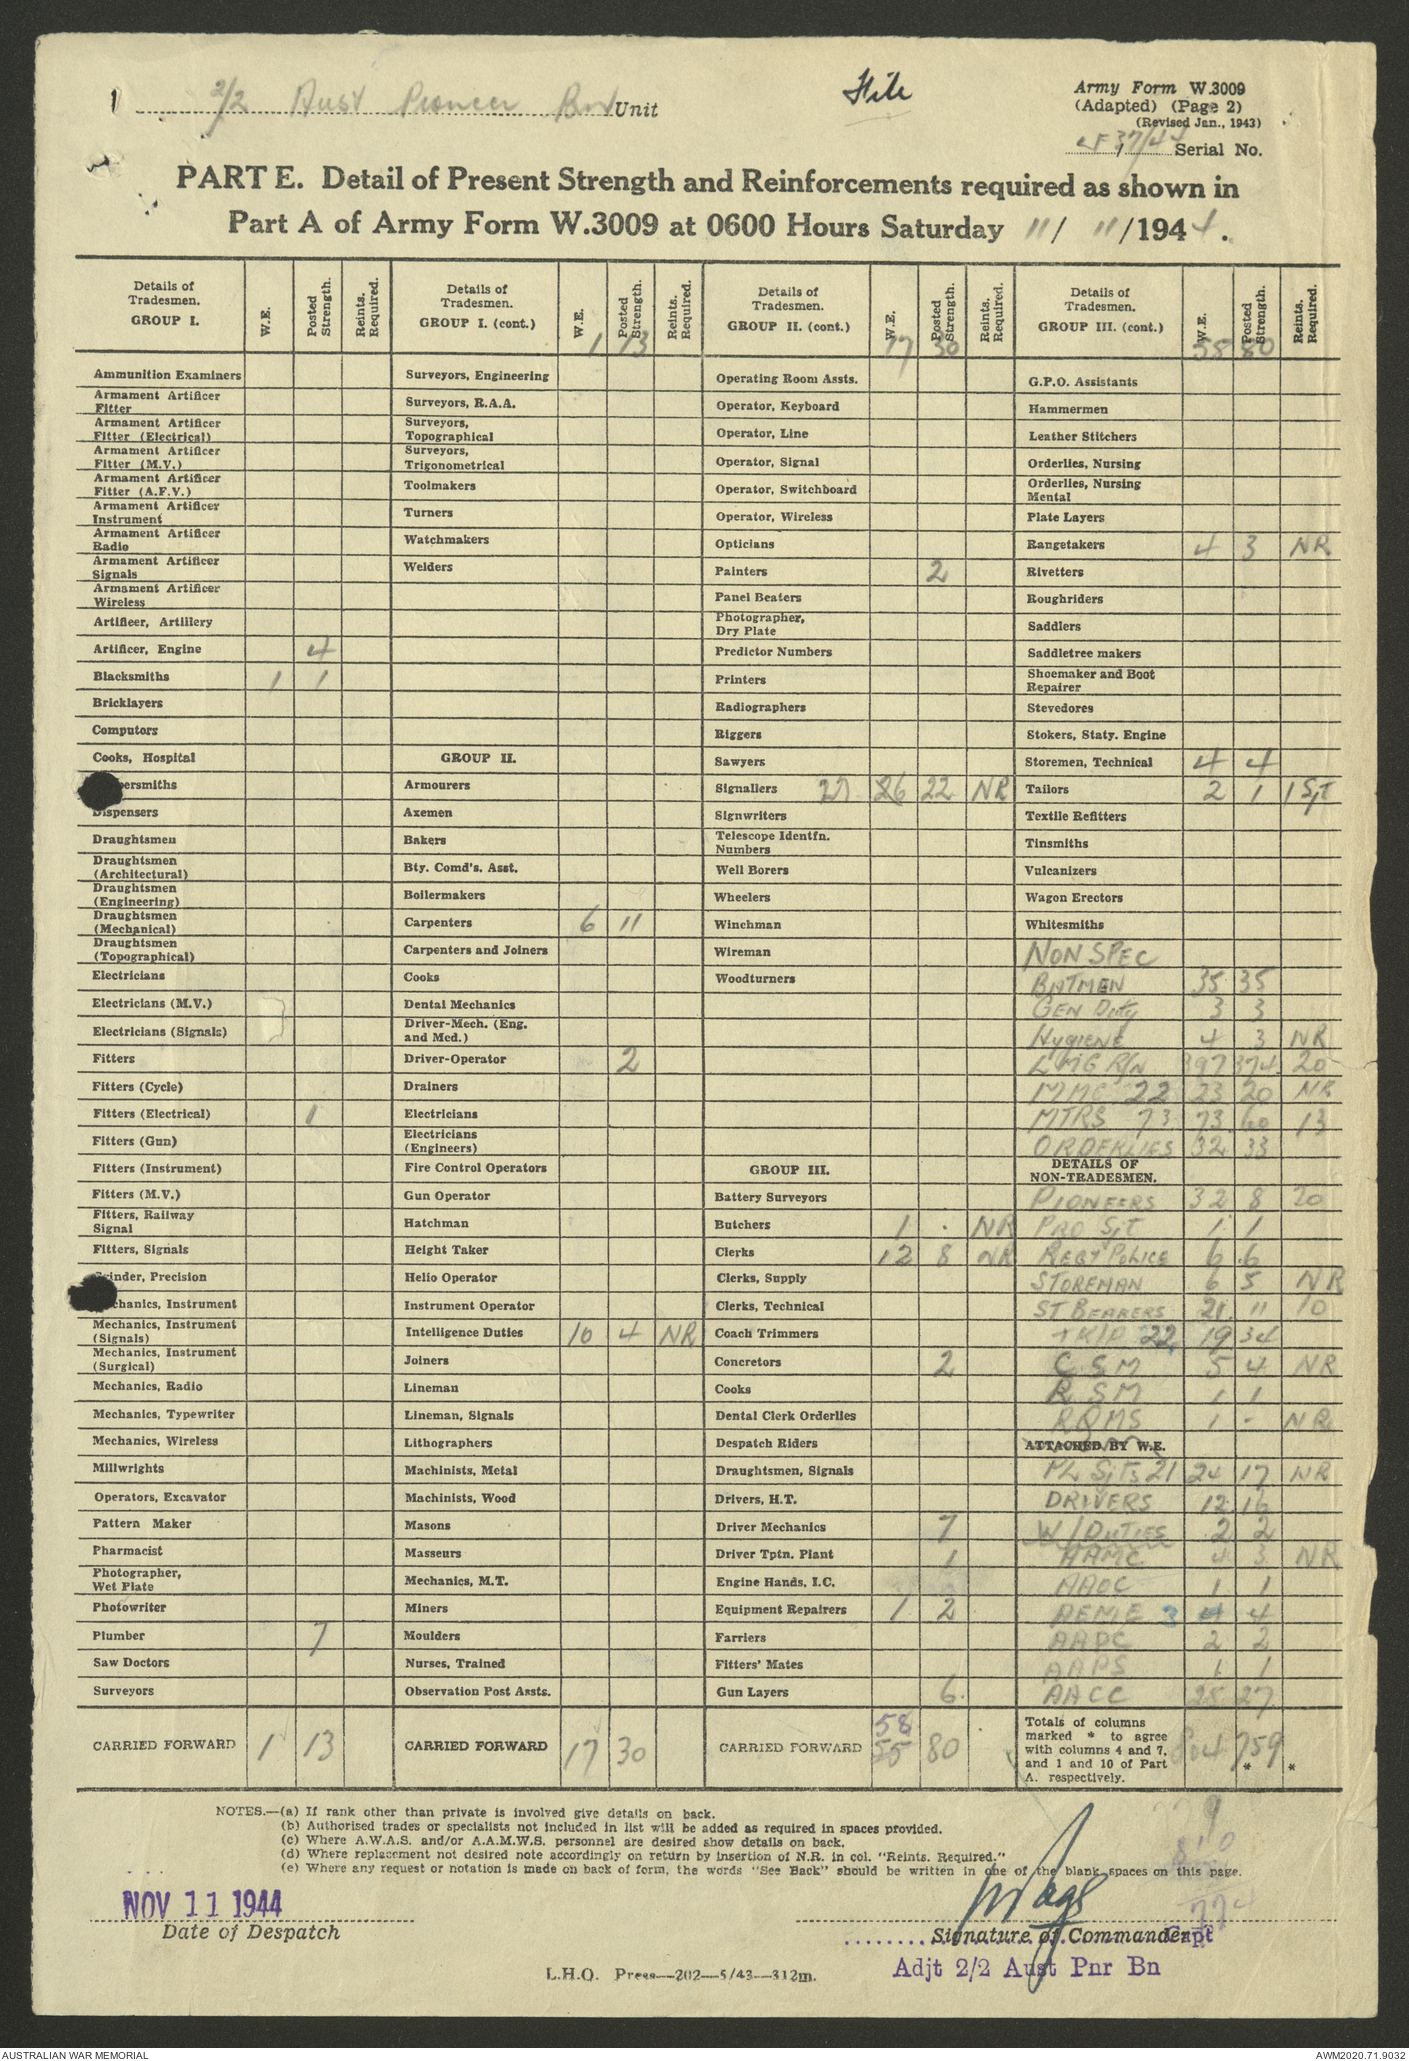 1 2/2 Aust Pioneer Bn Unit
File
Army Form W.3009
(Adapted) (Page 2)
(Revised Jan., 1943)
37/44 Serial No.
PART E. Detail of Present Strength and Reinforcements required as shown in
Part A of Army Form W.3009 at 0600 Hours Saturday 11/ 11/1944.
Details of Tradesmen. GROUP I. W.E. Posted Strength. Reints. Required.
Ammunition Examiners
Armament Artificer Fitter
Armament Artificer Fitter (Electrical)
Armament Artificer Fitter (M.V.)
Armament Artificer Fitter (A.F.V.)
Armament Artificer Instrument
Armament Artificer Radio
Armament Artificer Signals
Armament Artificer Wireless
Artificer, Artillery
Artificer, Engine 4
Blacksmiths 1 1
Bricklayers
Computors
Cooks, Hospital
persmiths
Dispensers
Draughtsmen
Draughtsmen (Architectural)
Draughtsmen (Engineering)
Draughtsmen (Mechanical)
Draughtsmen (Topographical)
Electricians
Electricians (M.V.)
Electricians (Signals)
Fitters
Fitters (Cycle)
Fitters (Electrical) 1
Fitters (Gun)
Fitters (Instrument)
Fitters (M.V.)
Fitters, Railway Signal
Fitters, Signals
Grinder, Precision
chanics, Instrument
Mechanics, Instrument (Signals)
Mechanics, Instrument (Surgical)
Mechanics, Radio
Mechanics, Typewriter
Mechanics, Wireless
Millwrights
Operators, Excavator
Pattern Maker
Pharmacist
Photographer, Wet Plate
Photowriter
Plumber 7
Saw Doctors
Surveyors
CARRIED FORWARD 1 13
Details of Tradesmen. GROUP I. (cont.) W.E. Posted Strength. Reints. Required.
1 13
Surveyors, Engineering
Surveyors, R.A.A.
Surveyors, Topographical
Surveyors, Trigonometrical
Toolmakers
Turners
Watchmakers
Welders
GROUP II.
Armourers
Axemen
Bakers
Bty. Comd's. Asst.
Boilermakers
Carpenters 6 11
Carpenters and Joiners
Cooks
Dental Mechanics
Driver-Mech. (Eng. and Med.)
Driver-Operator 2
Drainers
Electricians
Electricians (Engineers)
Fire Control Operators
Gun Operator
Hatchman
Height Taker
Helio Operator
Instrument Operator
Intelligence Duties 10 4 NR
Joiners
Lineman
Lineman, Signals
Lithographers
Machinists, Metal
Machinists, Wood
Masons
Masseurs
Mechanics, M.T.
Miners
Moulders
Nurses, Trained
Observation Post Assts.
CARRIED FORWARD 17 30
Details of Tradesmen. GROUP II. (cont.) W.E. Posted Strength. Reints. Required.
17 30
Operating Room Assts.
Operator, Keyboard
Operator, Line
Operator, Signal
Operator, Switchboard
Operator, Wireless
Opticians
Painters 2
Panel Beaters
Photographer, Dry Plate
Predictor Numbers
Printers
Radiographers
Riggers
Sawyers
Signallers 27 26 22 NR
Signwriters
Telescope Identfn. Numbers
Well Borers
Wheelers
Winchman
Wireman
Woodturners
GROUP III.
Battery Surveyors
Butchers 1 . NR
Clerks 12 8 NR
Clerks, Supply
Clerks, Technical
Coach Trimmers
Concretors 2
Cooks
Dental Clerk Orderlies
Despatch Riders
Draughtsmen, Signals
Drivers, H.T.
Driver Mechanics 7
Driver Tptn. Plant 1
Engine Hands, I.C.
Equipment Repairers 1 2
Farriers
Fitters' Mates
Gun Layers 6.
CARRIED FORWARD 58 55 80
Details of Tradesmen. GROUP III. (cont.) W.E. Posted Strength. Reints. Required.
58 80
G.P.O. Assistants
Hammermen
Leather Stitchers
Orderlies, Nursing
Orderlies, Nursing Mental
Plate Layers
Rangetakers 4 3 NR
Rivetters
Roughriders
Saddlers
Saddletree makers
Shoemaker and Boot Repairer
Stevedores
Stokers, Staty. Engine
Storemen, Technical 4 4
Tailors 2 1 1 Sjt
Textile Refitters
Tinsmiths
Vulcanizers
Wagon Erectors
Whitesmiths
NON SPEC
BATMEN 35 35
GEN Duty 3 3
Hygiene 4 3 NR
LMG R/N 397 374 20
MMG 22 23 20 NR
MTRS 73 73 60 13
ORDERLIES 32 33
DETAILS OF NON-TRADESMEN.
PIONEERS 32 8 20
PRO SJT 1 1
REGT POLICE 6 6
STOREMAN 6 5 NR
ST BEARERS 21 11 10
22 19 34
C S M 5 4 NR
R S M 1 1
RQMS 1 - NR
ATTACHED BY W.E.
PL SJTS 21 24 17 NR
DRIVERS 12 16
W/DUTIES 2 2
AAMC 4 3 NR
AAOC 1 1
AEME 3 4 4
AAPC 2 2
AAPS 1 1
AACC 25 27
Totals of columns marked * to agree with columns 4 and 7, and 1 and 10 of Part A. respectively. 804 759 * *
NOTES.—(a) If rank other than private is involved give details on back.
(b) Authorised trades or specialists not included in list will be added as required in spaces provided.
(c) Where A.W.A.S. and/or A.A.M.W.S. personnel are desired show details on back.
(d) Where replacement not desired note accordingly on return by insertion of N.R. in col. "Reints. Required."
(e) Where any request or notation is made on back of form, the words "See Back" should be written in one of the blank spaces on this page.
810
774
NOV 11 1944
Date of Despatch
Signature of Commander Capt
Adjt 2/2 Aust Pnr Bn
L.H.Q. Press—202—5/43—312m.
AUSTRALIAN WAR MEMORIAL
AWM2020.71.9032